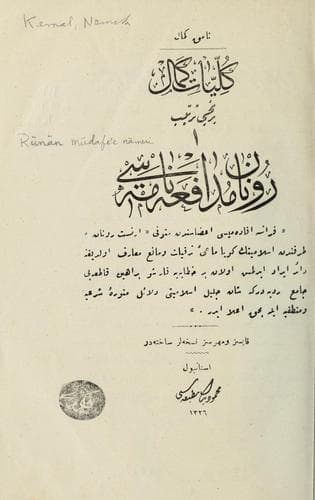 Kemal, Namık
نامق كمال
كلیات كمال
برنجی ترتیب
١
Rünân müdafe'e nâmesi
رونان مدافعه نامه سی
« فرانسه اقاده میسی اعضاسندن متوفی « ارنست رونان »
طرفندن اسلامیتك كویا مانع ترقیات ومانع معارف اولدیغنه
دائر ایراد ایدلمش اولان بر خطابه یه قارشو براهین قاطعه یی
جامع ردیه دركه شان جلیل اسلامیتی دلائل متنوعۀ شرعیه
ومنطقیه ایله بحق اعلا ایدر . »
قاپسز ومهرسز نسخه لر ساخته در
استانبول
محمود بك مطبعه سی
١٣٢٦